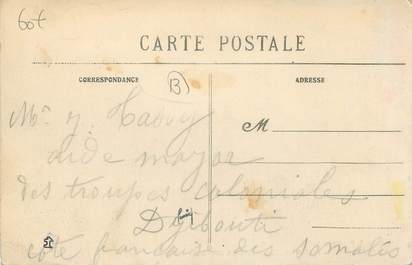 60f
CARTE POSTALE
CORRESPONDANCE
ADRESSE
B
M
Mr J.
aide major
des troupes coloniales
Djibouti
côte française des somalis